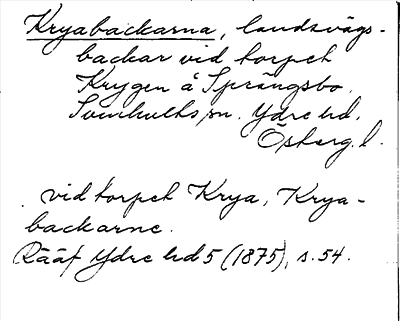 Kryabackarna, landsvägs-
backar vid torpet
Krygen å Sprängsbo.
Svinhults sn. Ydre hd.
Östergl.
vid torpet Krya, Krya-
backarne.
Rääf Ydre hd 5 (1875), s. 54.